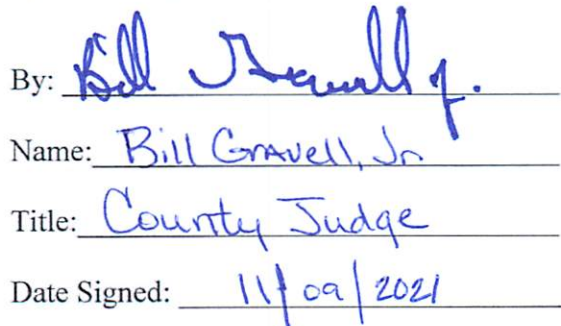 By: Bill Gravell Jr.
Name: Bill Gravell, Jr
Title: County Judge
Date Signed: 11/09/2021